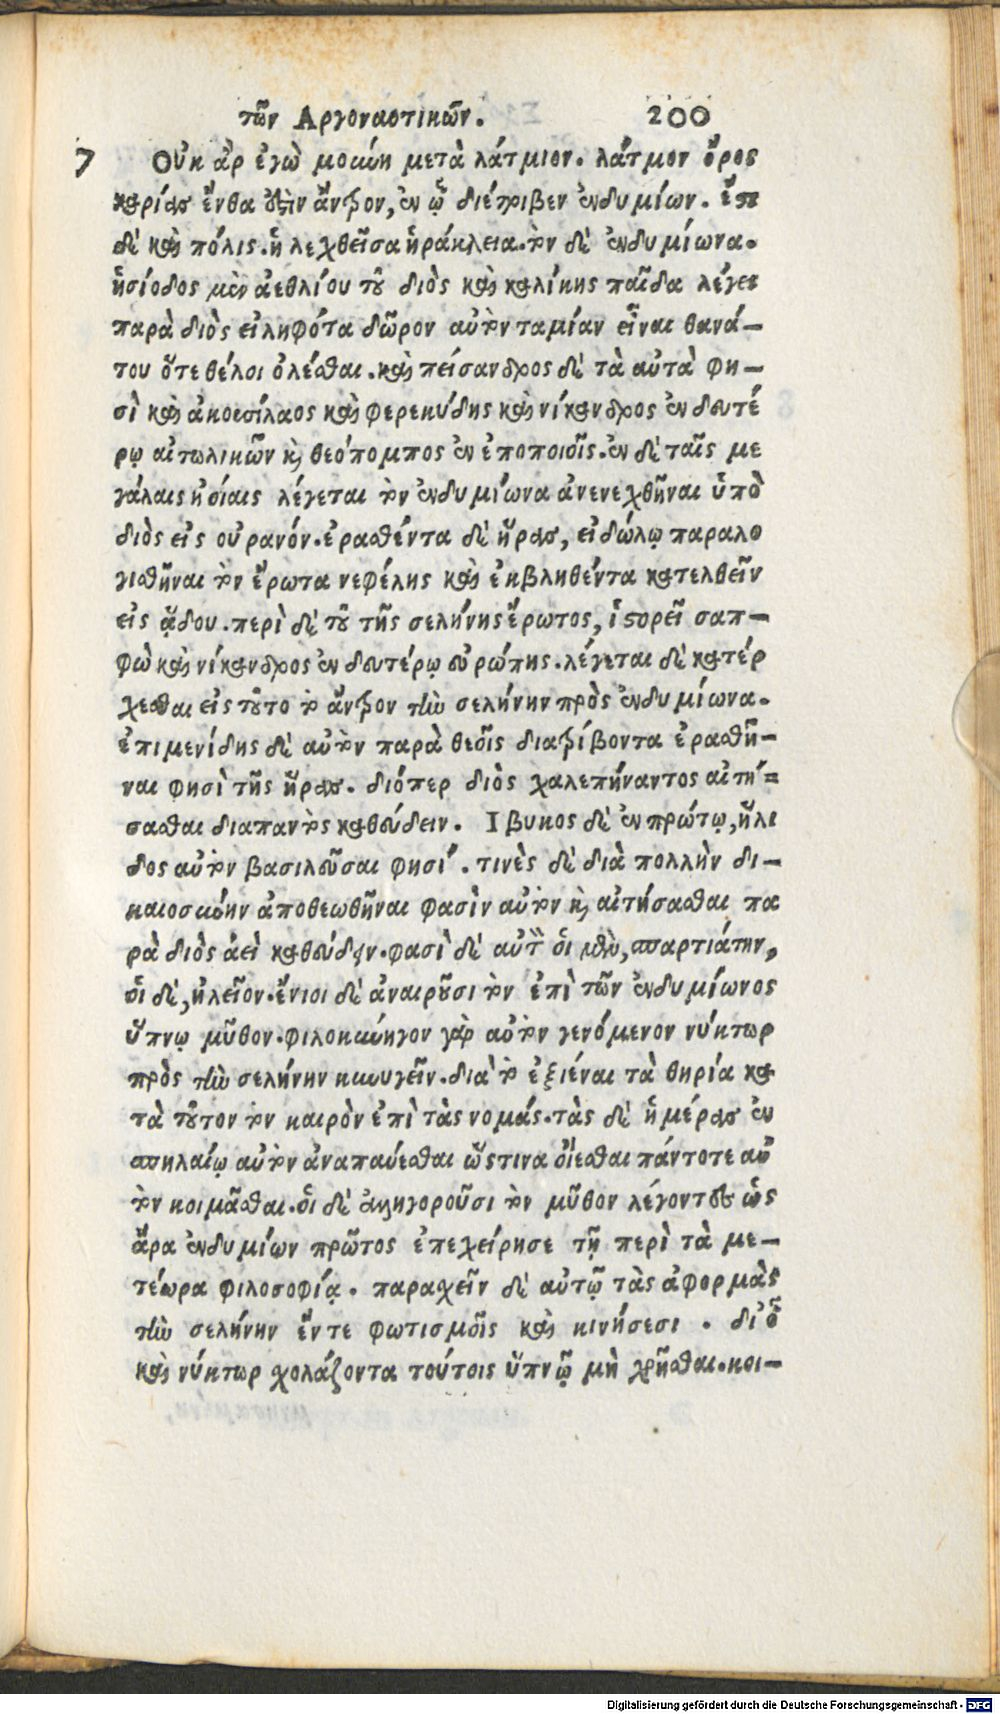 τῶν Αργοναυτικῶν. 200
7 Οὐκ ἂρ ἐγὼ μούνη μετὰ λάτμιον. λάτμον ὄρος
καρίας ἔνθα ἐστὶν ἄντρον, ἐν ᾧ διέτριβεν ἐνδυμίων. ἔστι
δὲ καὶ πόλις. ἡ λεχθεῖσα ἡράκλεια. τὸν δὲ ἐνδυμίωνα.
ἡσίοδος μὲν ἀεθλίου τοῦ διὸς καὶ καλίκης παῖδα λέγει
παρὰ διὸς εἰληφότα δῶρον αὐτὸν ταμίαν εἶναι θανά-
του ὅτε θέλοι ὀλέσθαι. καὶ πείσανδρος δὲ τὰ αὐτὰ φη-
σὶ καὶ ἀκουσίλαος καὶ φερεκύδης καὶ νίκανδρος ἐν δευτέ
ρῳ αἰτωλικῶν καὶ θεόπομπος ἐν ἐποποιοῖς. ἐν δὲ ταῖς με
γάλαις ἠοίαις λέγεται τὸν ἐνδυμίωνα ἀνενεχθῆναι ὑπὸ
διὸς εἰς οὐρανόν. ἐρασθέντα δὲ ἥρας, εἰδώλῳ παραλο
γισθῆναι τὸν ἔρωτα νεφέλης καὶ ἐκβληθέντα κατελθεῖν
εἰς ᾅδου. περὶ δὲ τοῦ τῆς σελήνης ἔρωτος, ἱστορεῖ σαπ-
φὼ καὶ νίκανδρος ἐν δευτέρῳ εὐρώπης. λέγεται δὲ κατέρ
χεσθαι εἰς τοῦτο τὸ ἄντρον τὴν σελήνην πρὸς ἐνδυμίωνα.
ἐπιμενίδης δὲ αὐτὸν παρὰ θεοῖς διατρίβοντα ἐρασθῆ-
ναι φησὶ τῆς ἥρας. διόπερ διὸς χαλεπήναντος αἰτή-
σασθαι διαπαντὸς καθεύδειν. Ιβυκος δὲ ἐν πρώτῳ, ἤλι
δος αὐτὸν βασιλεῦσαι φησί. τινὲς δὲ διὰ πολλὴν δι-
καιοσύνην ἀποθεωθῆναι φασὶν αὐτὸν καὶ αἰτήσασθαι πα
ρὰ διὸς ἀεὶ καθεύδειν. φασὶ δὲ αὐτὸν οἱ μὲν, σπαρτιάτην,
οἱ δὲ, ἠλεῖον. ἔνιοι δὲ ἀναιροῦσι τὸν ἐπὶ τῶν ἐνδυμίωνος
ὕπνῳ μῦθον. φιλοκύνηγον γὰρ αὐτὸν γενόμενον νύκτωρ
πρὸς τὴν σελήνην κυνηγεῖν. διὰ τὸ ἐξιέναι τὰ θηρία κα
τὰ τοῦτον τὸν καιρὸν ἐπὶ τὰς νομάς. τὰς δὲ ἡμέρας ἐν
σπηλαίῳ αὐτὸν ἀναπαύεσθαι ὥστινα οἴεσθαι πάντοτε αὐ
τὸν κοιμᾶσθαι. οἱ δὲ ἀλληγοροῦσι τὸν μῦθον λέγοντες ὡς
ἄρα ἐνδυμίων πρῶτος ἐπεχείρησε τῇ περὶ τὰ με-
τέωρα φιλοσοφίᾳ. παραχεῖν δὲ αὐτῷ τὰς ἀφορμὰς
τὴν σελήνην ἔντε φωτισμοῖς καὶ κινήσεσι. διὸ
καὶ νύκτωρ χολάζοντα τούτοις ὕπνῷ μὴ χρῆσθαι. κοι-
Digitalisierung gefördert durch die Deutsche Forschungsgemeinschaft - DFG